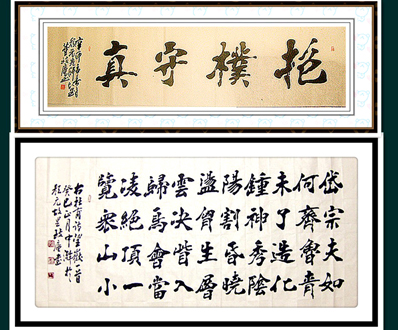 抱樸守真
岱宗夫如
何齊魯青
未了造化
鍾神秀陰
陽割昏曉
盪胷生層
雲決眥入
歸鳥會當
凌絕頂一
覽眾山小
右杜甫詩望嶽一首
癸巳正月中澣於